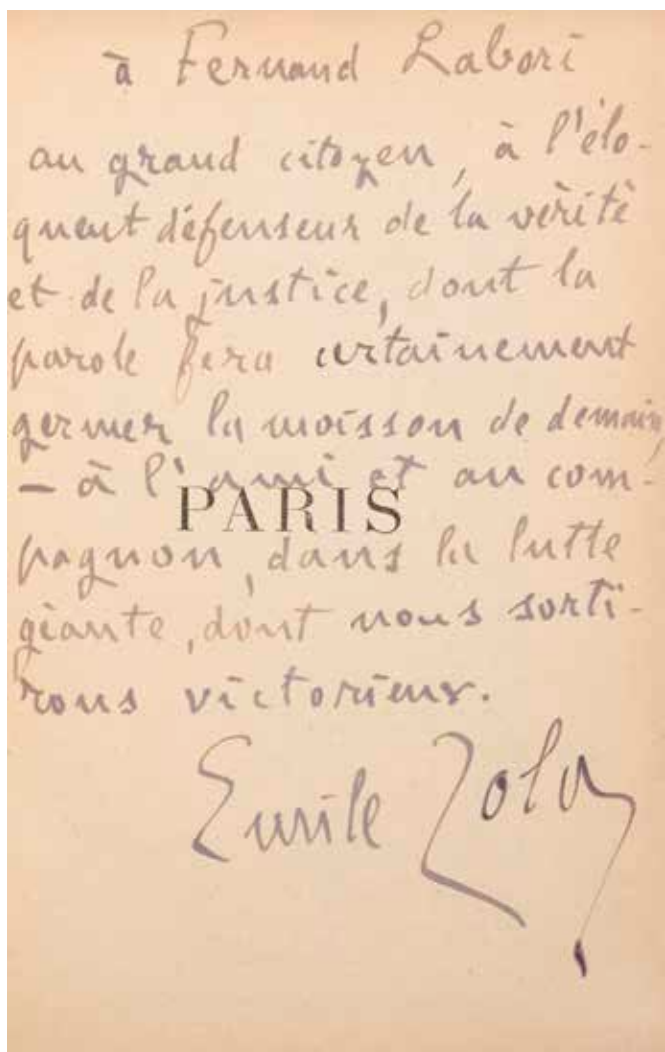 à Fernand Labori
au grand citoyen, à l'élo-
quent défenseur de la vérité
et de la justice, dont la
parole fera certainement
germer la moisson de demain,
– à l'ami et au com-
PARIS
pagnon, dans la lutte
géante, dont nous sorti-
rons victorieux.
Emile Zola